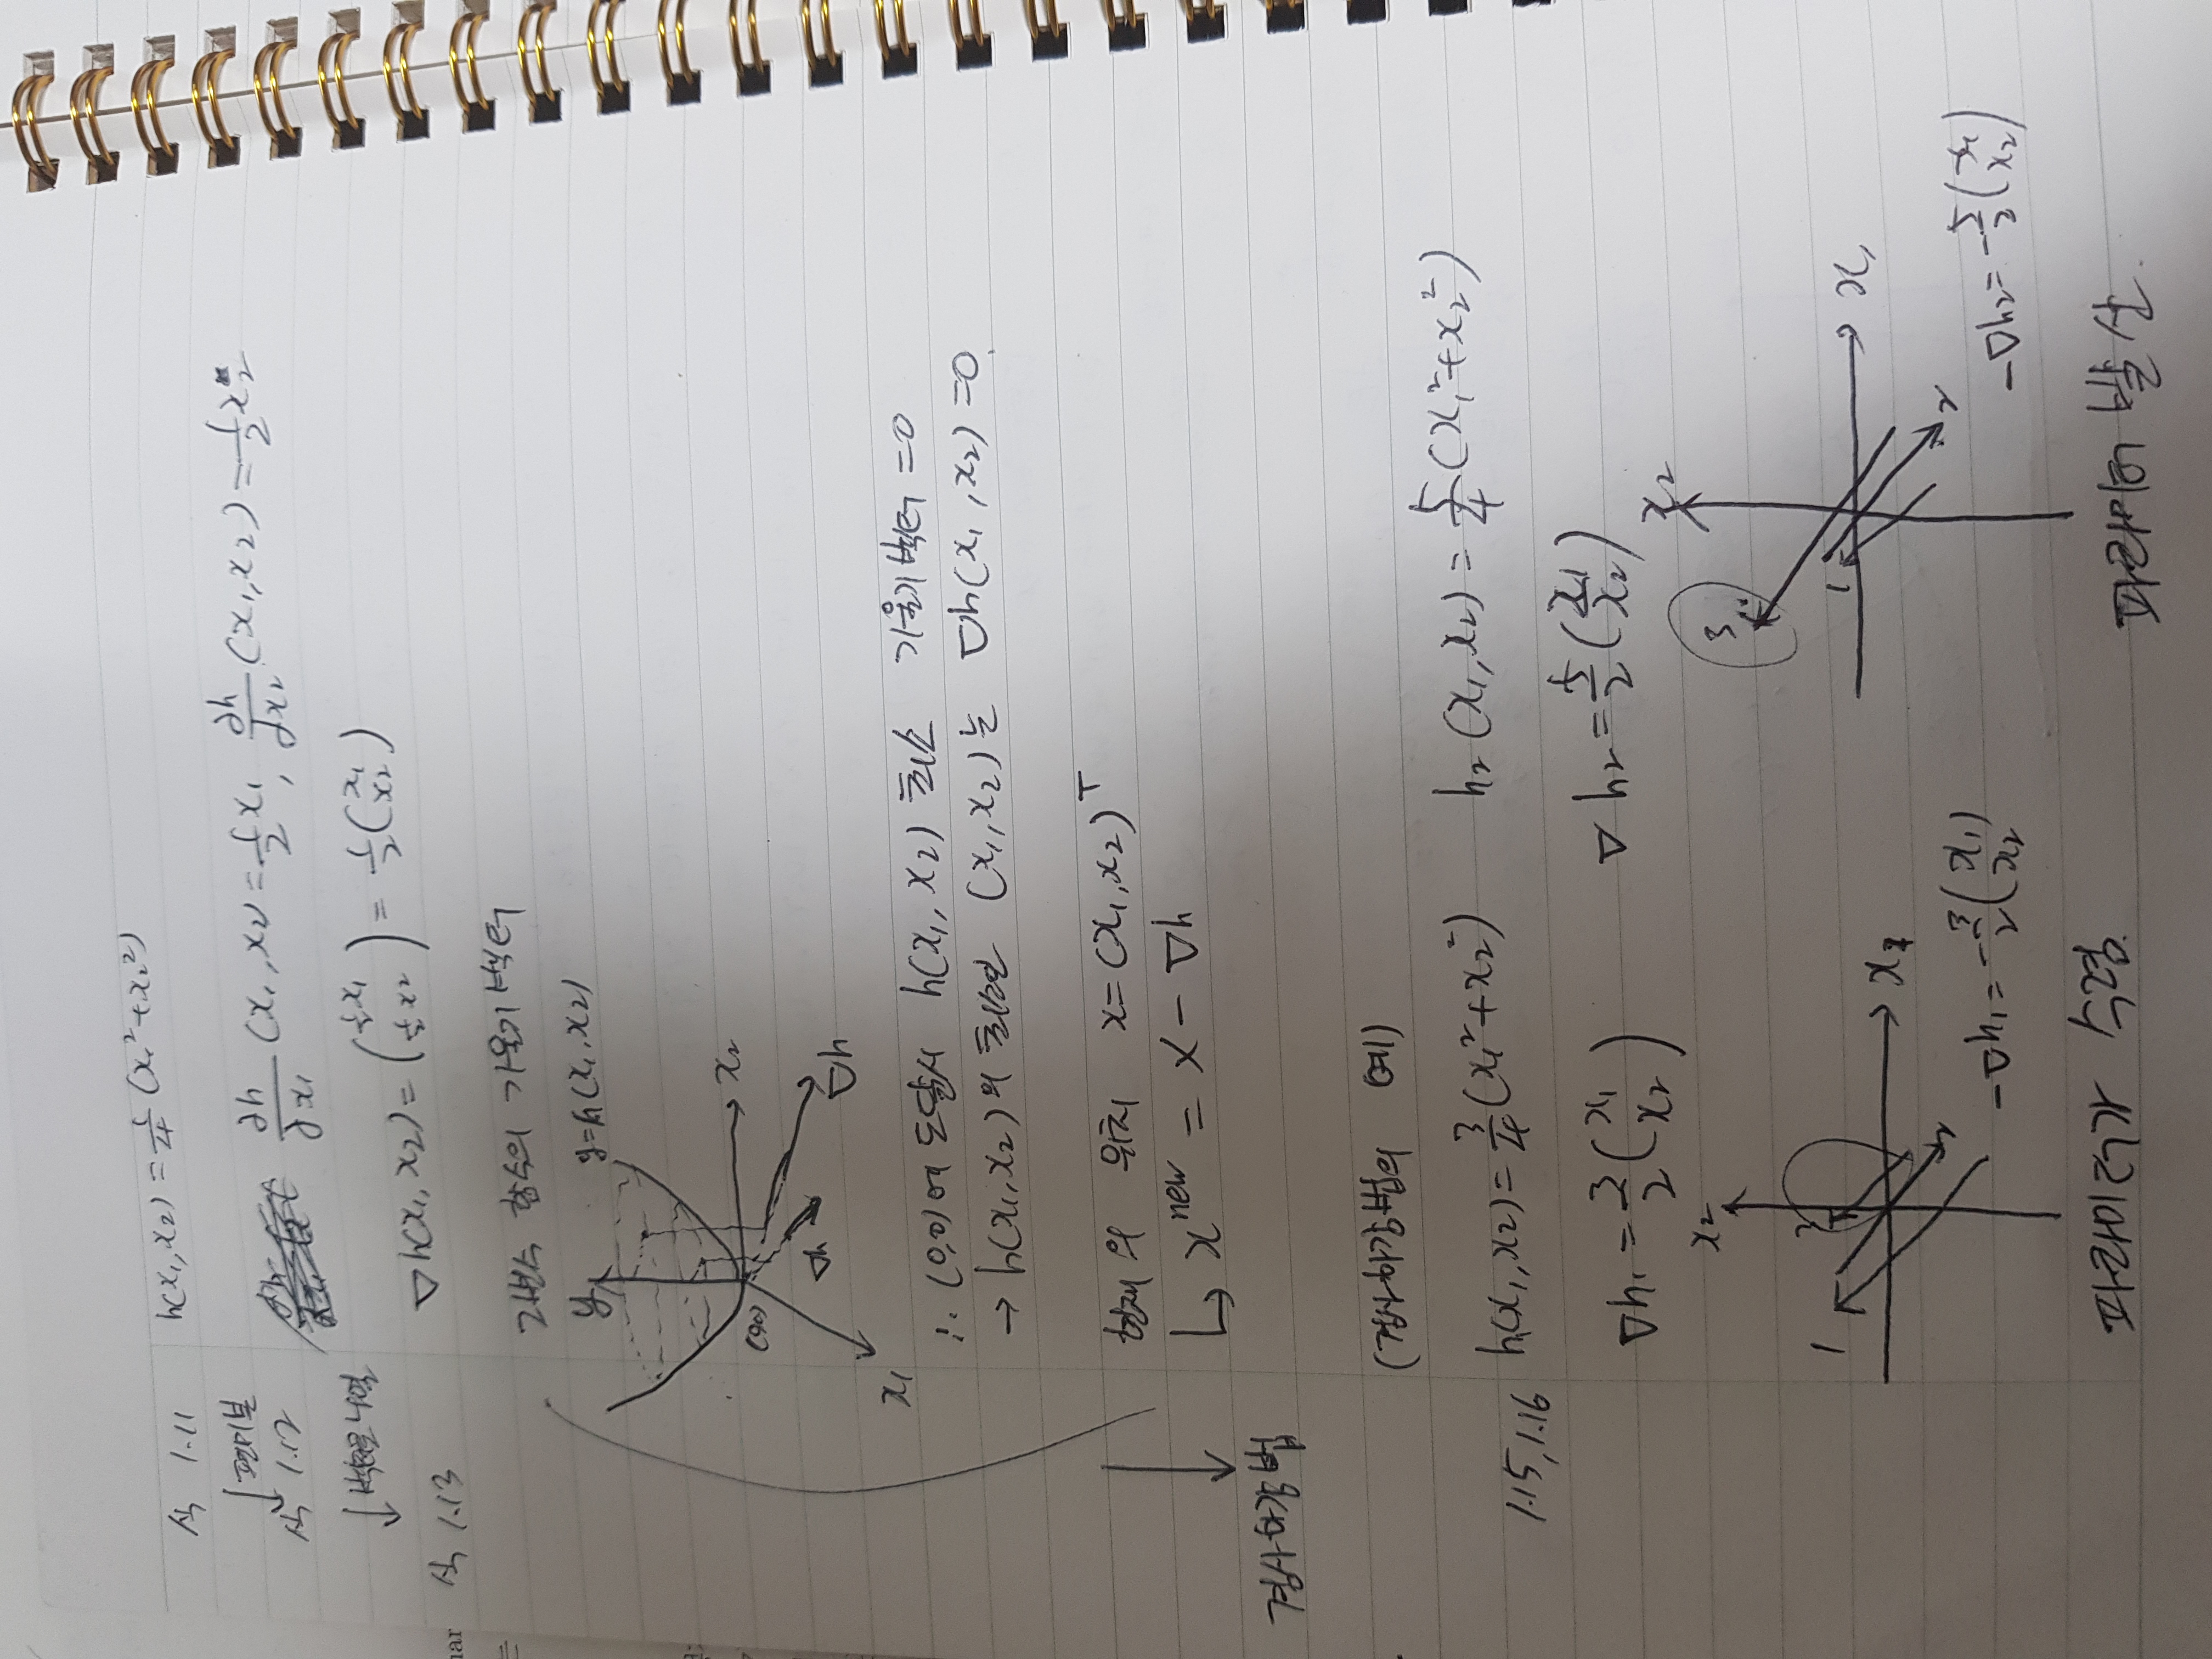 식 1.11 h(x₁,x₂) = 1/4 (x₁²+x₂²)
↓ 편미분
식 1.12 ∂h/∂x₁ (x₁,x₂) = 1/2 x₁, ∂h/∂x₂ (x₁,x₂) = 1/2 x₂
↓ 벡터로 나열
식 1.13 ∇h(x₁,x₂) = (1/2 x₁ 1/2 x₂) = 1/2 (x₁ x₂)
다변수 함수의 기울기 벡터
y y=h(x₁,x₂)
x₂
(0,0)
∇h ∇h
x₁
∴ (0,0)에 도달시 h(x₁,x₂) 최소 기울기 벡터 = 0
→ h(x₁,x₂)의 최소인 (x₁,x₂)는 ∇h(x₁,x₂)=0
현재의 위치 x=(x₁,x₂)ᵀ
↳ xⁿᵉʷ = x - ∇h
경사하강법
(경사하강법의 예)
1.15, 1.16 h₁(x₁,x₂) = 3/4 (x₁²+x₂²) h₂(x₁,x₂) = 5/4 (x₁²+x₂²)
∇h₁ = 3/2 (x₁ x₂) ∇h₂ = 5/2 (x₁ x₂)
x₂ x₂
3
1 3 1
x₁ x₁
2 2
-∇h₁ = -3/2 (x₁ x₂) -∇h₂ = -5/2 (x₁ x₂)
파라미터가 수렴. 파라미터 발산.